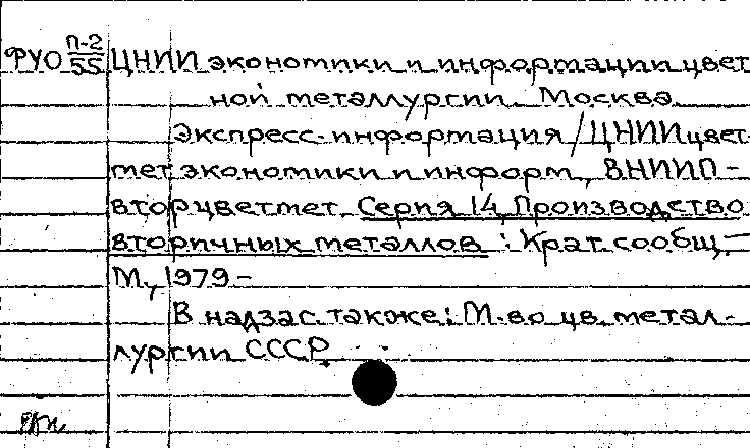 ФУО П-2/55 ЦНИИ экономики и информации цвет
ной металлургии. Москва.
Экспресс-информация / ЦНИИцвет
мет экономики и информ., ВНИИП-
вторцветмет. Серия 14, Производство
вторичных металлов : Крат. сообщ. —
М., 1979 –
В надзаг. также: М-во цв. метал-
лургии СССР